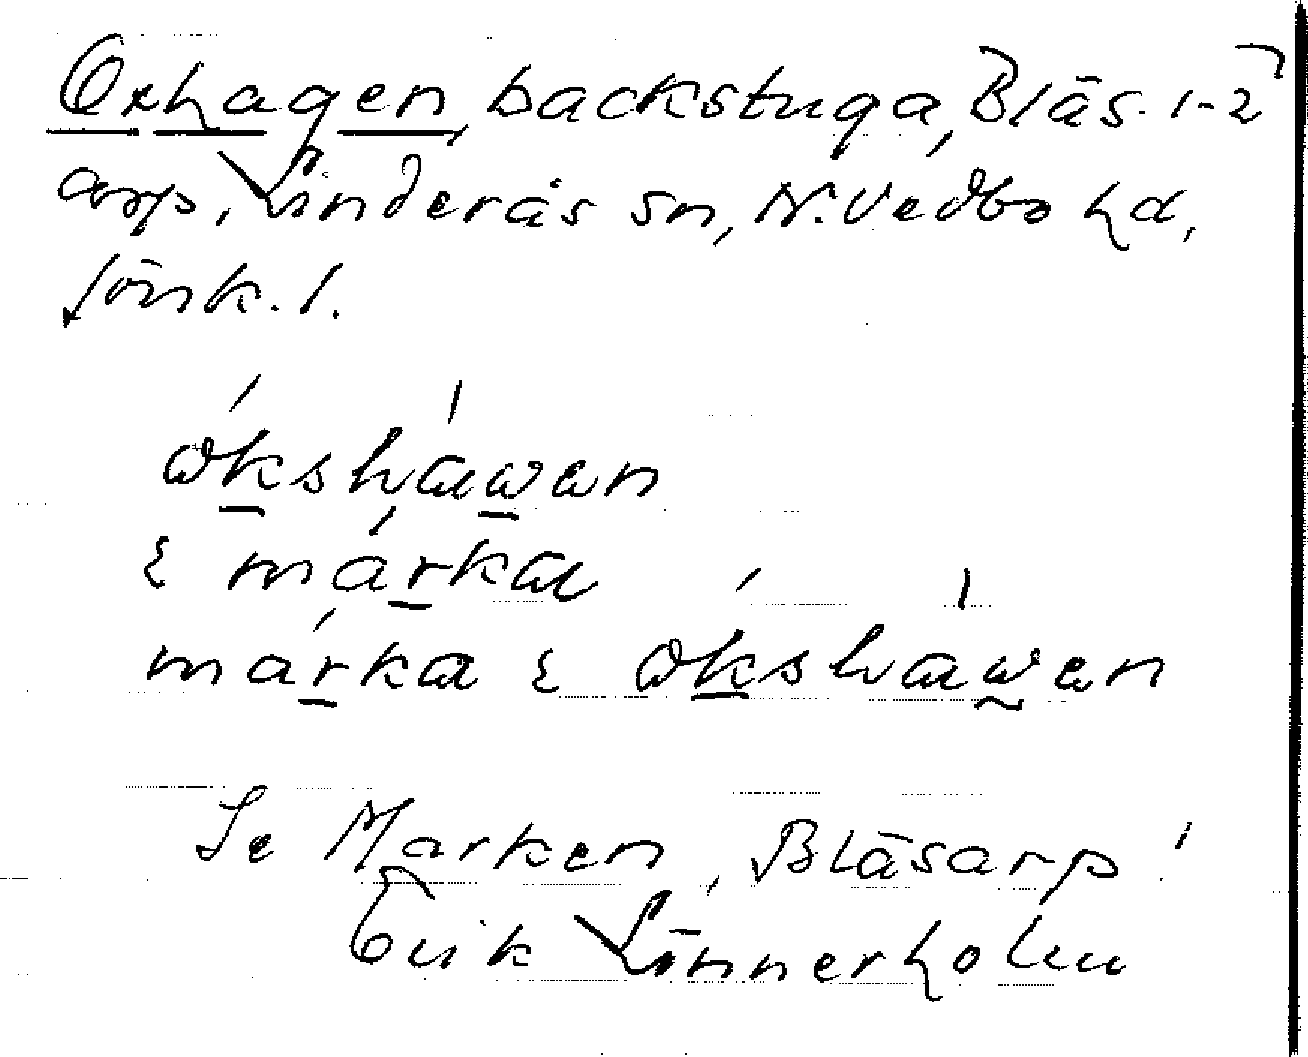 Oxhagen, backstuga, Bläs. 1-2
arp, Linderås sn, N. Vedbo hd,
Jönk. l.
ωkshαωαn
ε márkα
márkα ε ωkshαωen
Se Marken, Bläsarp!
Erik Linnerholm